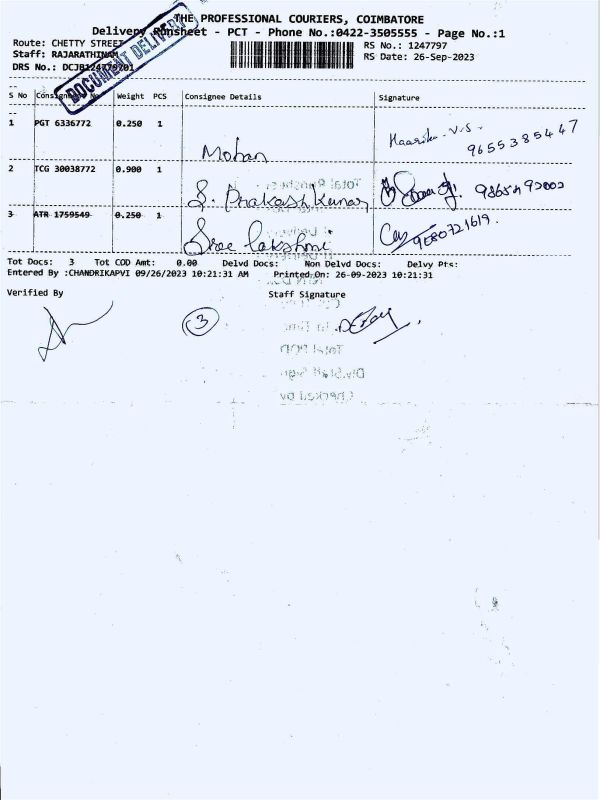 THE PROFESSIONAL COURIERS, COIMBATORE
Delivery Runsheet - PCT - Phone No.:0422-3505555 - Page No.:1
Route: CHETTY STREET
RS No.: 1247797
Staff: RAJARATHINAM
RS Date: 26-Sep-2023
DRS No.:
DOCUMENT DELIVERY
S No Consignment No Weight PCS Consignee Details Signature
1 PGT 6336772 0.250 1 Mohan Haarika.V.S. 9655385447
2 TCG 30038772 0.900 1 S. Prakash Kumar
3 ATR 1759549 0.250 1 Sree lakshmi 9080721619.
Tot Docs: 3 Tot COD Amt: 0.00 Delvd Docs: Non Delvd Docs: Delvy Pts:
Entered By :CHANDRIKAPVI 09/26/2023 10:21:31 AM Printed On: 26-09-2023 10:21:31
Verified By Staff Signature
3
Total POD
Div.Staff Sign
Checked by